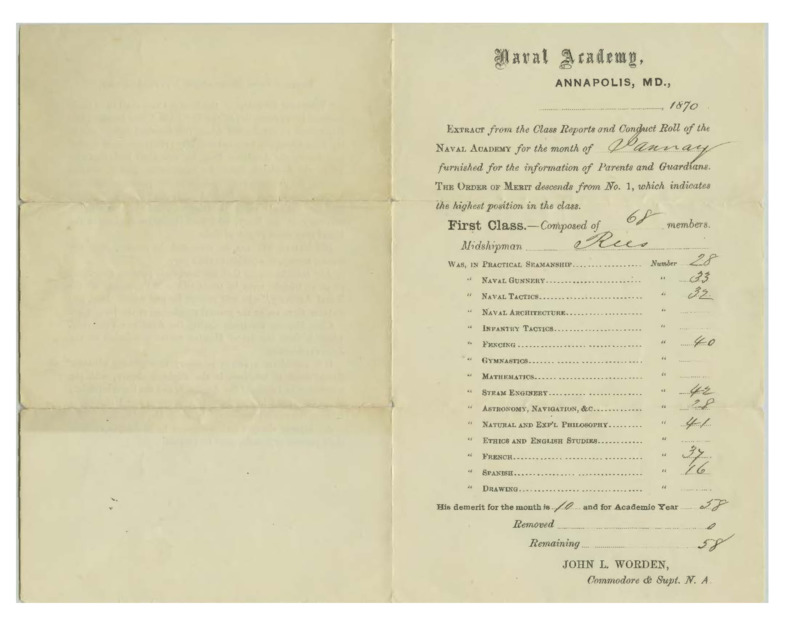 Naval Academy,
ANNAPOLIS, MD.,
1870
EXTRACT from the Class Reports and Conduct Roll of the
NAVAL ACADEMY for the month of January
furnished for the information of Parents and Guardians.
THE ORDER OF MERIT descends from No. 1, which indicates
the highest position in the class.
First Class.—Composed of 68 members.
Midshipman Rees
WAS, IN PRACTICAL SEAMANSHIP Number 28
" NAVAL GUNNERY " 33
" NAVAL TACTICS " 32
" NAVAL ARCHITECTURE "
" INFANTRY TACTICS "
" FENCING " 40
" GYMNASTICS "
" MATHEMATICS "
" STEAM ENGINERY " 42
" ASTRONOMY, NAVIGATION, &C " 28
" NATURAL AND EXP'L PHILOSOPHY " 41
" ETHICS AND ENGLISH STUDIES "
" FRENCH " 37
" SPANISH " 16
" DRAWING "
His demerit for the month is 10 and for Academic Year 58
Removed 0
Remaining 58
JOHN L. WORDEN,
Commodore & Supt. N. A.